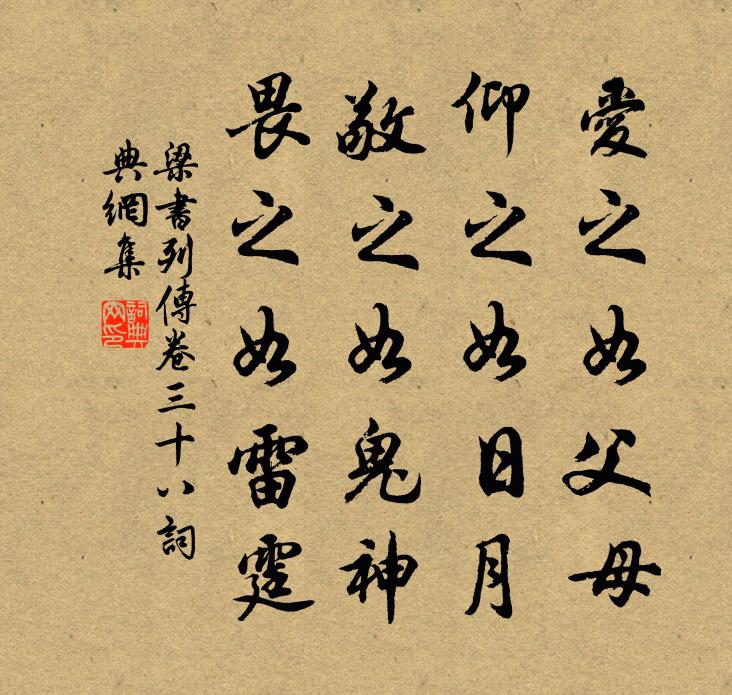 愛之如父母
仰之如日月
敬之如鬼神
畏之如雷霆
梁書列傳卷三十八詞
典網集
詞典
网印